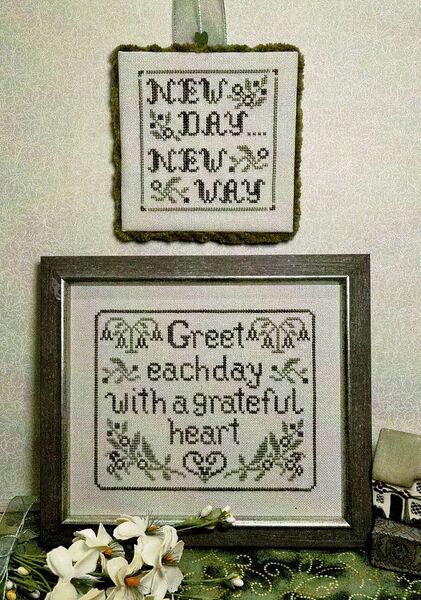 NEW
DAY....
NEW
WAY
Greet
each day
with a grateful
heart